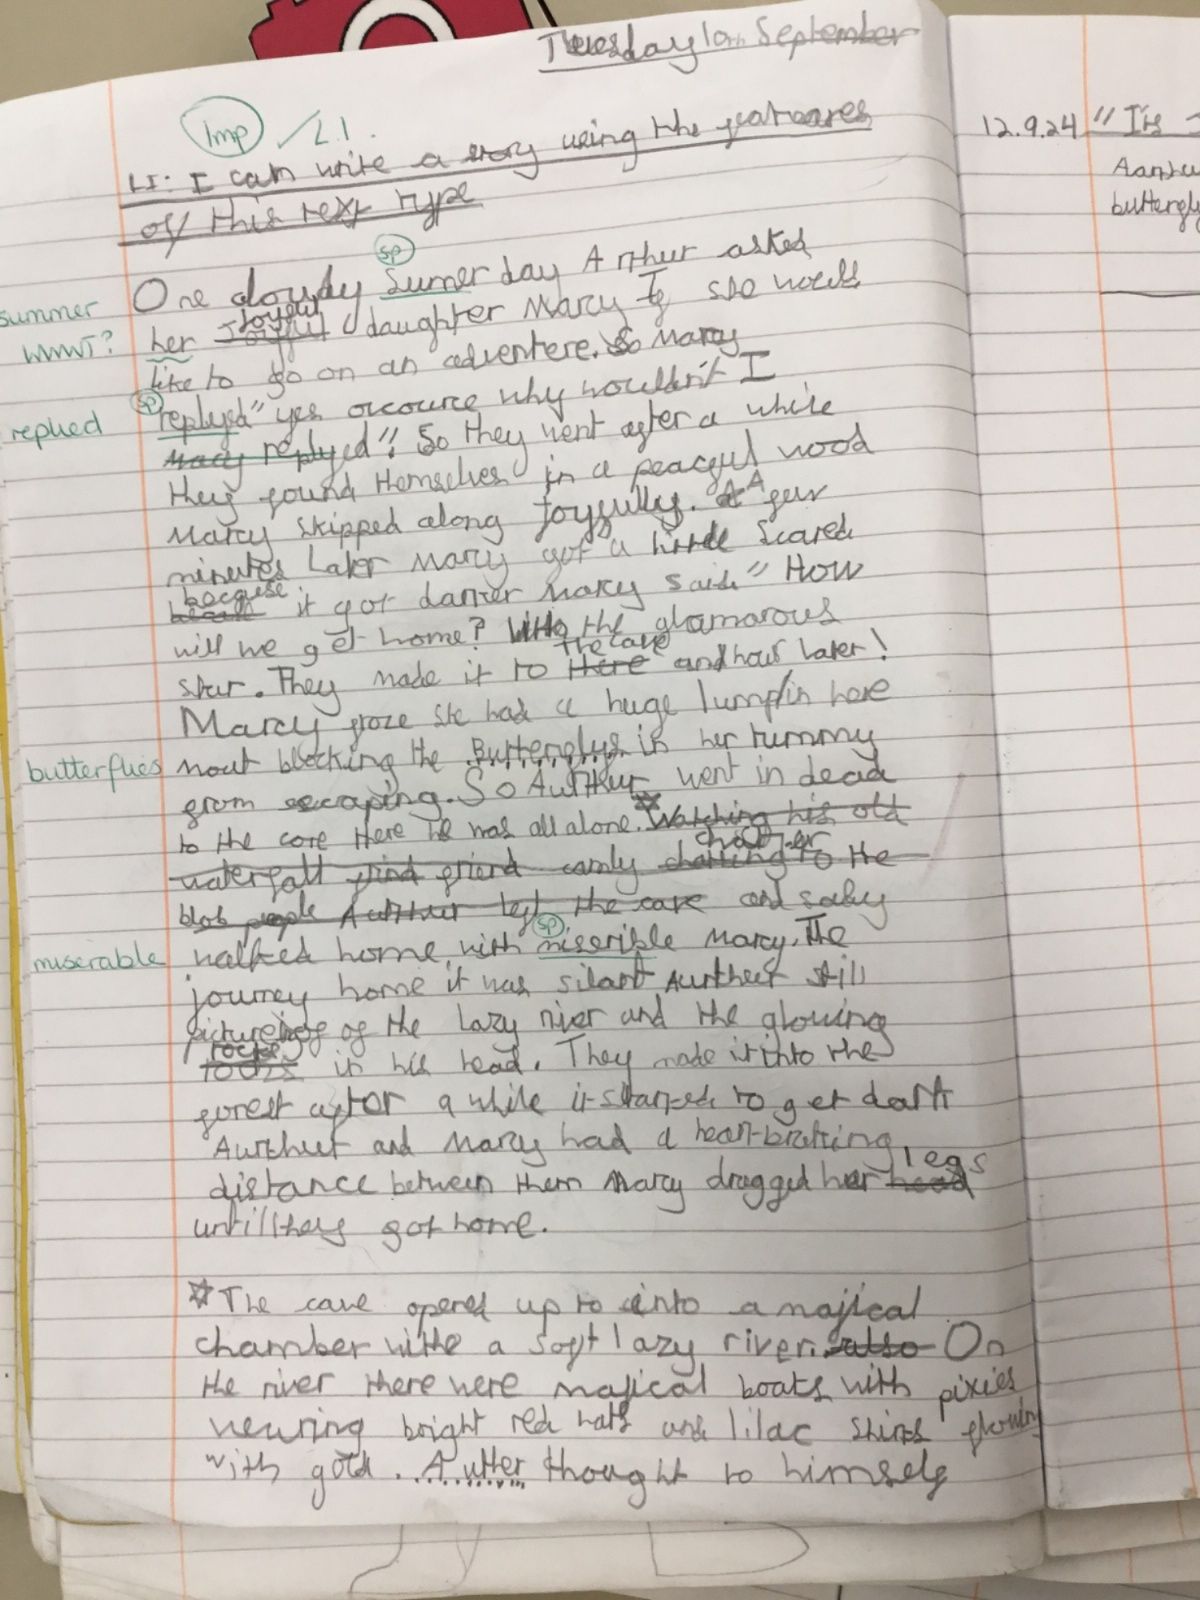 Tuesday 10th September
Imp L.I.
LI: I can write a story using the features
of this text type
One cloudy Sumer day Arthur asked
sp
summer
her Joyful daughter Marcy if she would
Joyful
WWWT?
like to go on an adventere. So Marcy
replyed" yes ofcource why wouldn't I
sp
replied
Marcy replyed". So they went after a while
they found themselves in a peacful wood
Marcy skipped along joyfully. A few
minutes Later Marcy got a little scared
because
it got darker Marcy said " How
will we get home? the glamorous
star. They made it to there and hour later!
The cave
Marcy froze she had a huge lump in here
mout blocking the Butterflys in her tummy
butterflies
from escaping. So Aurthur went in dead
to the core there he was all alone. Watching his old
waterfall friend camly chatting to the
blob people Aurthur left the cave and sadly
walked home with miserible Marcy. The
sp
miserable
journey home it was silant Aurthur still
pictureing of the Lazy river and the glowing
rocks in his head. They made it into the
forest aftor a while it started to get dark
Aurthur and Marcy had a heart-braking
distance between them Marcy dragged her head
legs
untill they got home.
☆The cave opened up to into a majical
chamber withe a soft lazy river. also On
the river there were majical boats with pixies
wearing bright red hats and lilac shirts glowing
with gold. Autter thought to himself
12.9.24 "It's
butterfly